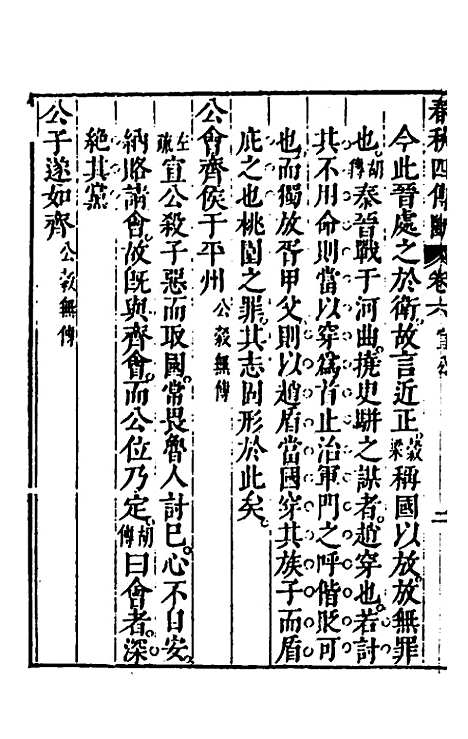 春秋四傳斷 卷六 宣公 二
今此晉處之於衛故言近正穀梁稱國以放放無罪
也胡傳秦晉戰于河曲撓史駢之謀者趙穿也若討
其不用命則當以穿爲首止治軍門之呼偕貶可
也而獨放胥甲父則以趙盾當國穿其族子而盾
庇之也桃園之罪其志固形於此矣
公會齊侯于平州 公穀無傳
左疏宣公殺子惡而取國常畏魯人討已心不自安
納賂請會故旣與齊會而公位乃定胡傳曰會者深
絶其黨
公子遂如齊 公穀無傳